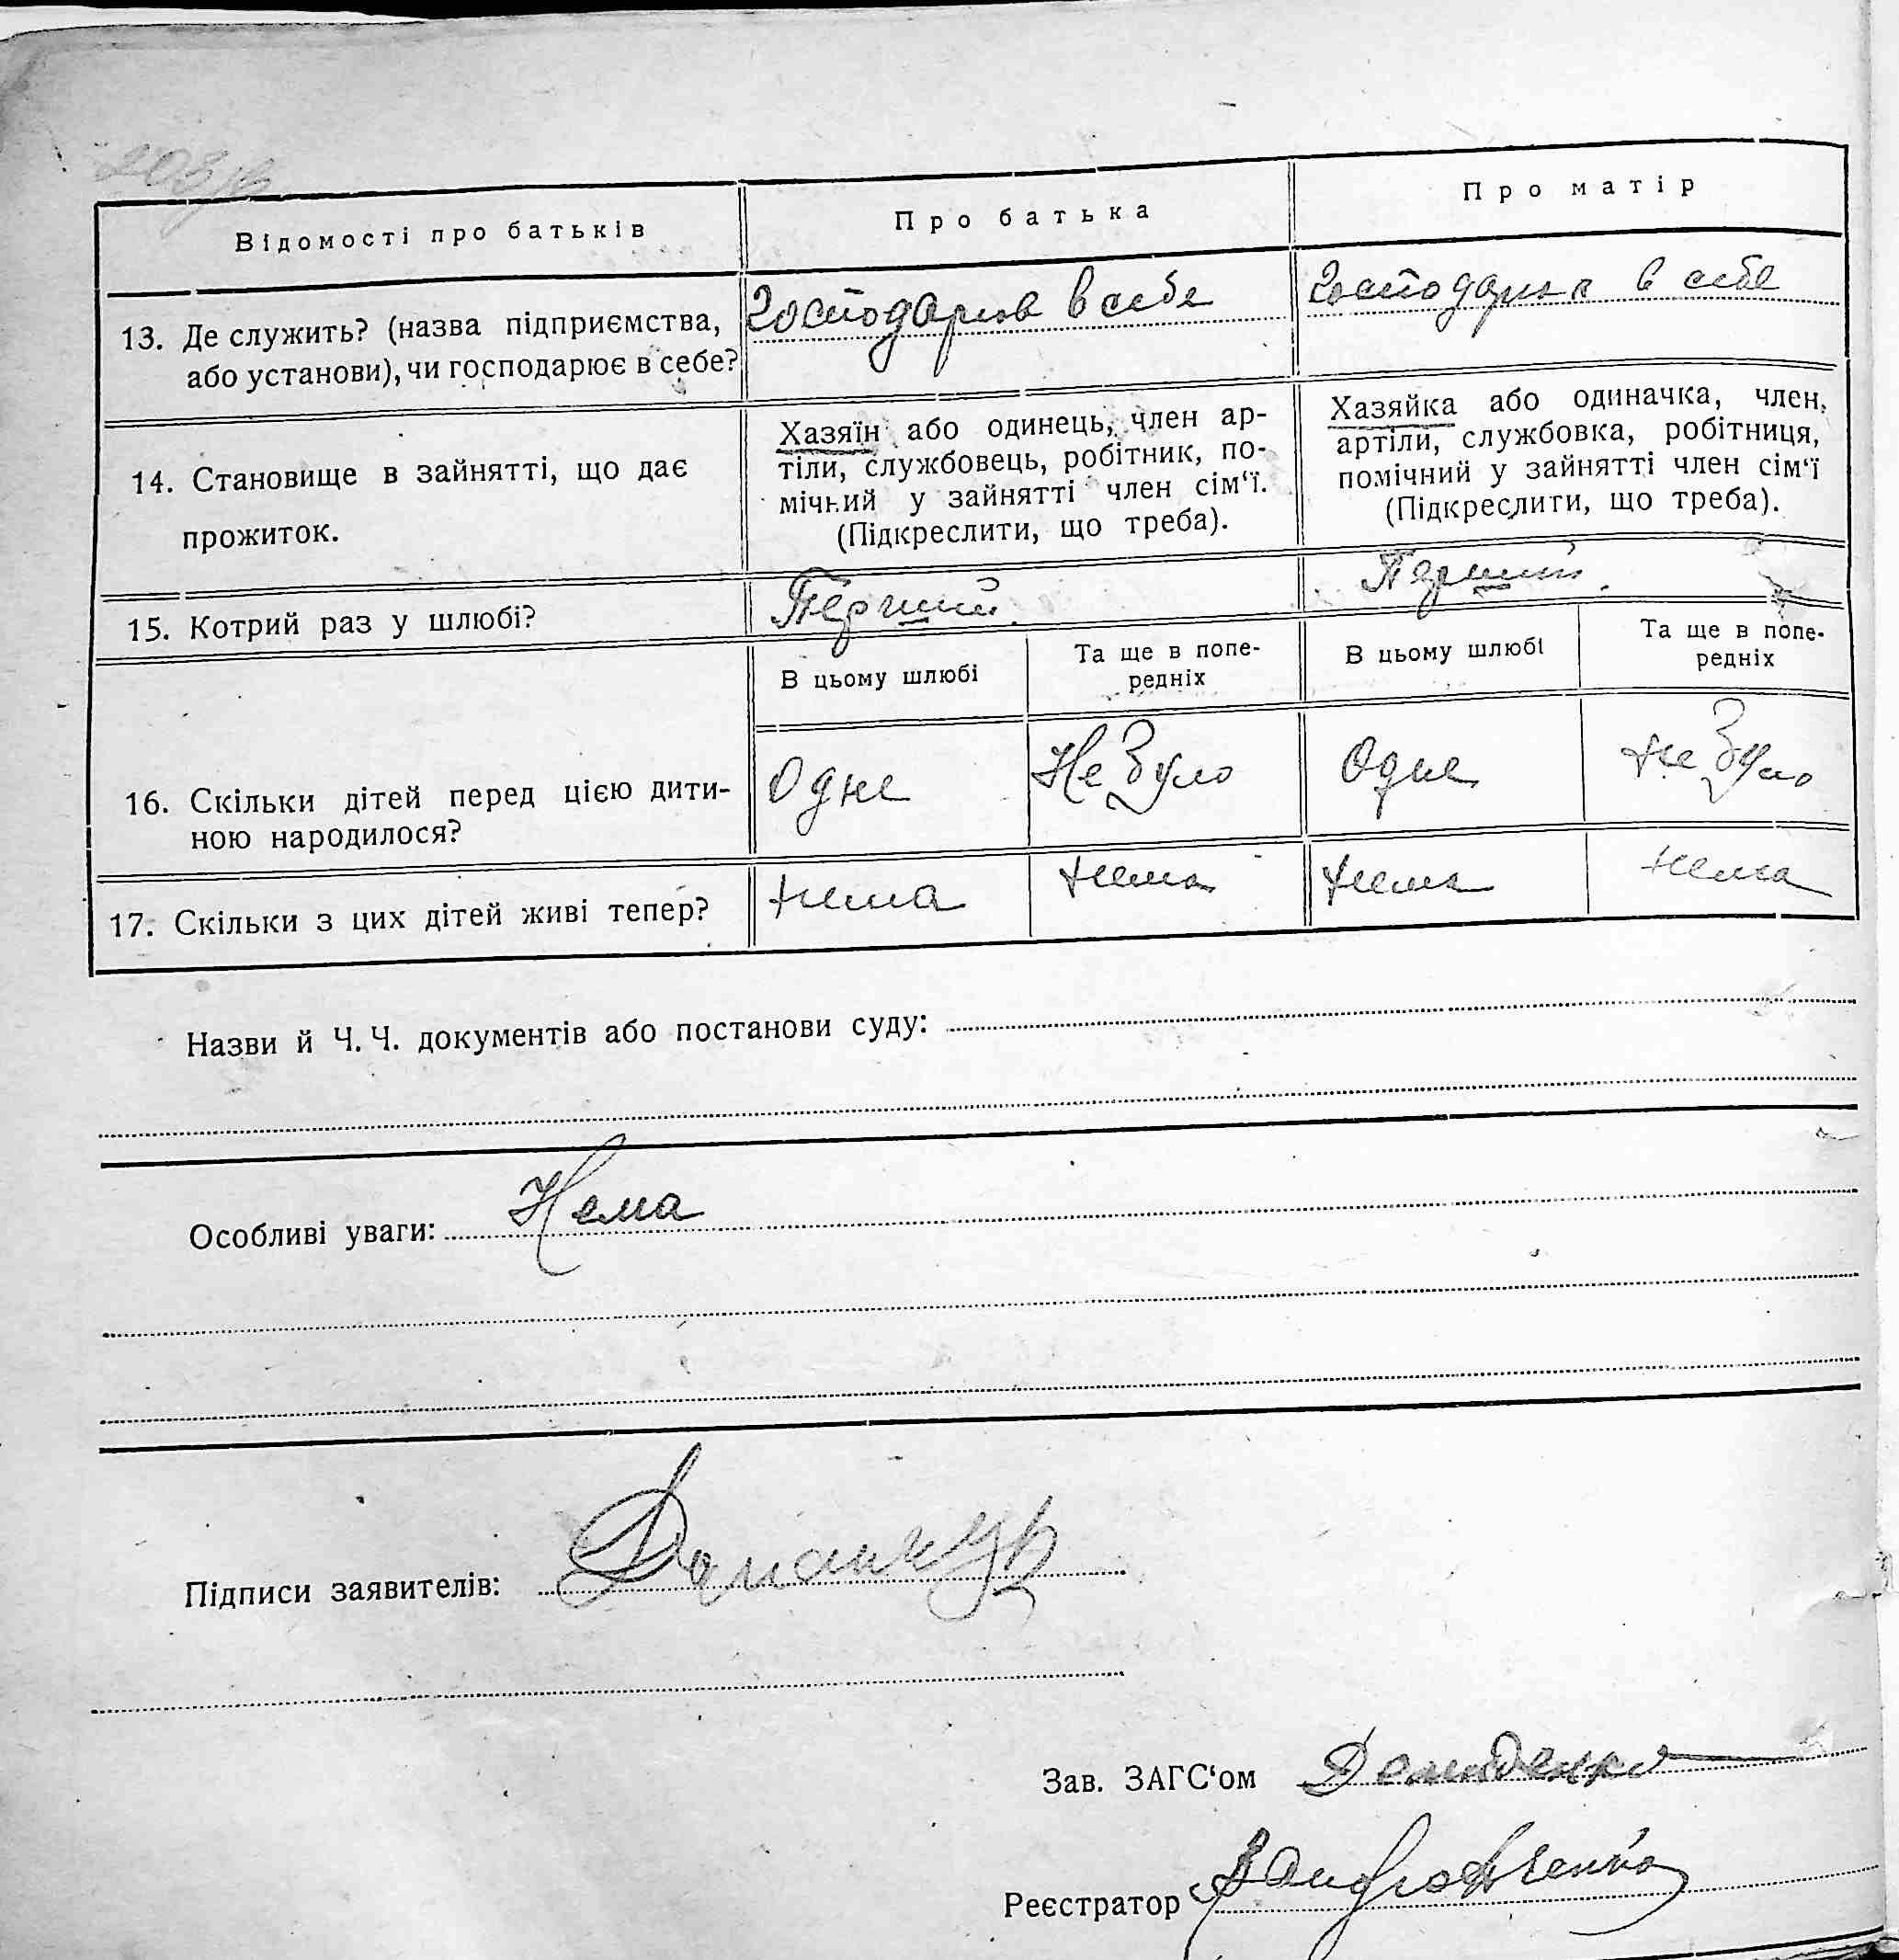 Відомості про батьків
Про батька
Про матір
13. Де служить? (назва підприємства,
або установи), чи господарює в себе?
Господарює в себе
Господарює в себе
14. Становище в зайнятті, що дає
прожиток.
Хазяїн або одинець, член ар-
тіли, службовець, робітник, по-
мічний у зайнятті член сім‘ї.
(Підкреслити, що треба).
Хазяйка або одиначка, член
артіли, службовка, робітниця,
помічний у зайнятті член сім‘ї
(Підкреслити, що треба).
15. Котрий раз у шлюбі?
Перший
Перший.
В цьому шлюбі
Та ще в попе-
редніх
В цьому шлюбі
Та ще в попе-
редніх
16. Скільки дітей перед цією дити-
ною народилося?
Одне
Не було
Одне
Не було
17. Скільки з цих дітей живі тепер?
нема
нема
нема
нема
Назви й Ч. Ч. документів або постанови суду:
Особливі уваги: Нема
Підписи заявителів:
Зав. ЗАГС‘ом
Реєстратор